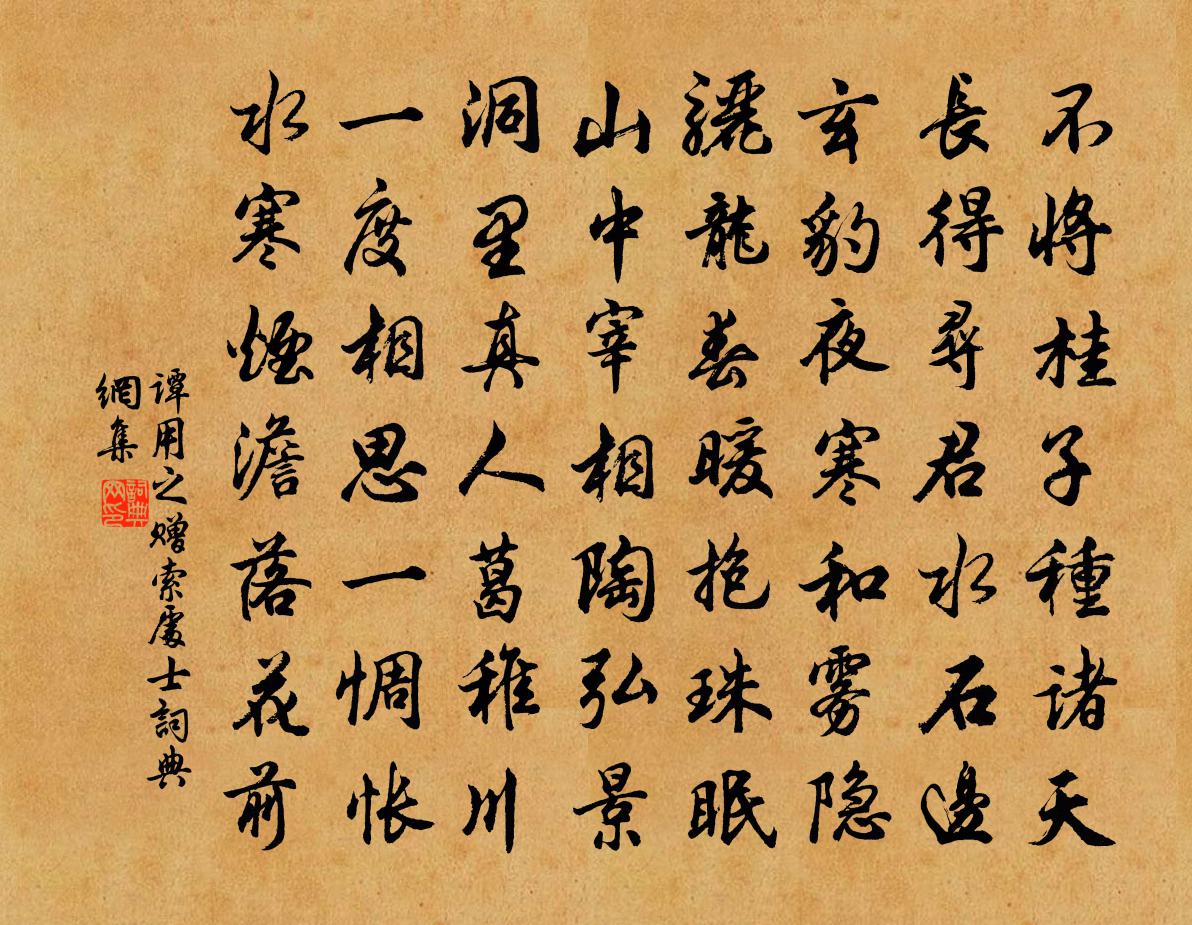 不將桂子種諸天
長得尋君水石邊
玄豹夜寒和雾隐
驪龍春暖抱珠眠
山中宰相陶弘景
洞里真人葛稚川
一度相思一惆怅
水寒煙澹落花前
谭用之赠索處士詞典
網集
詞典
网印